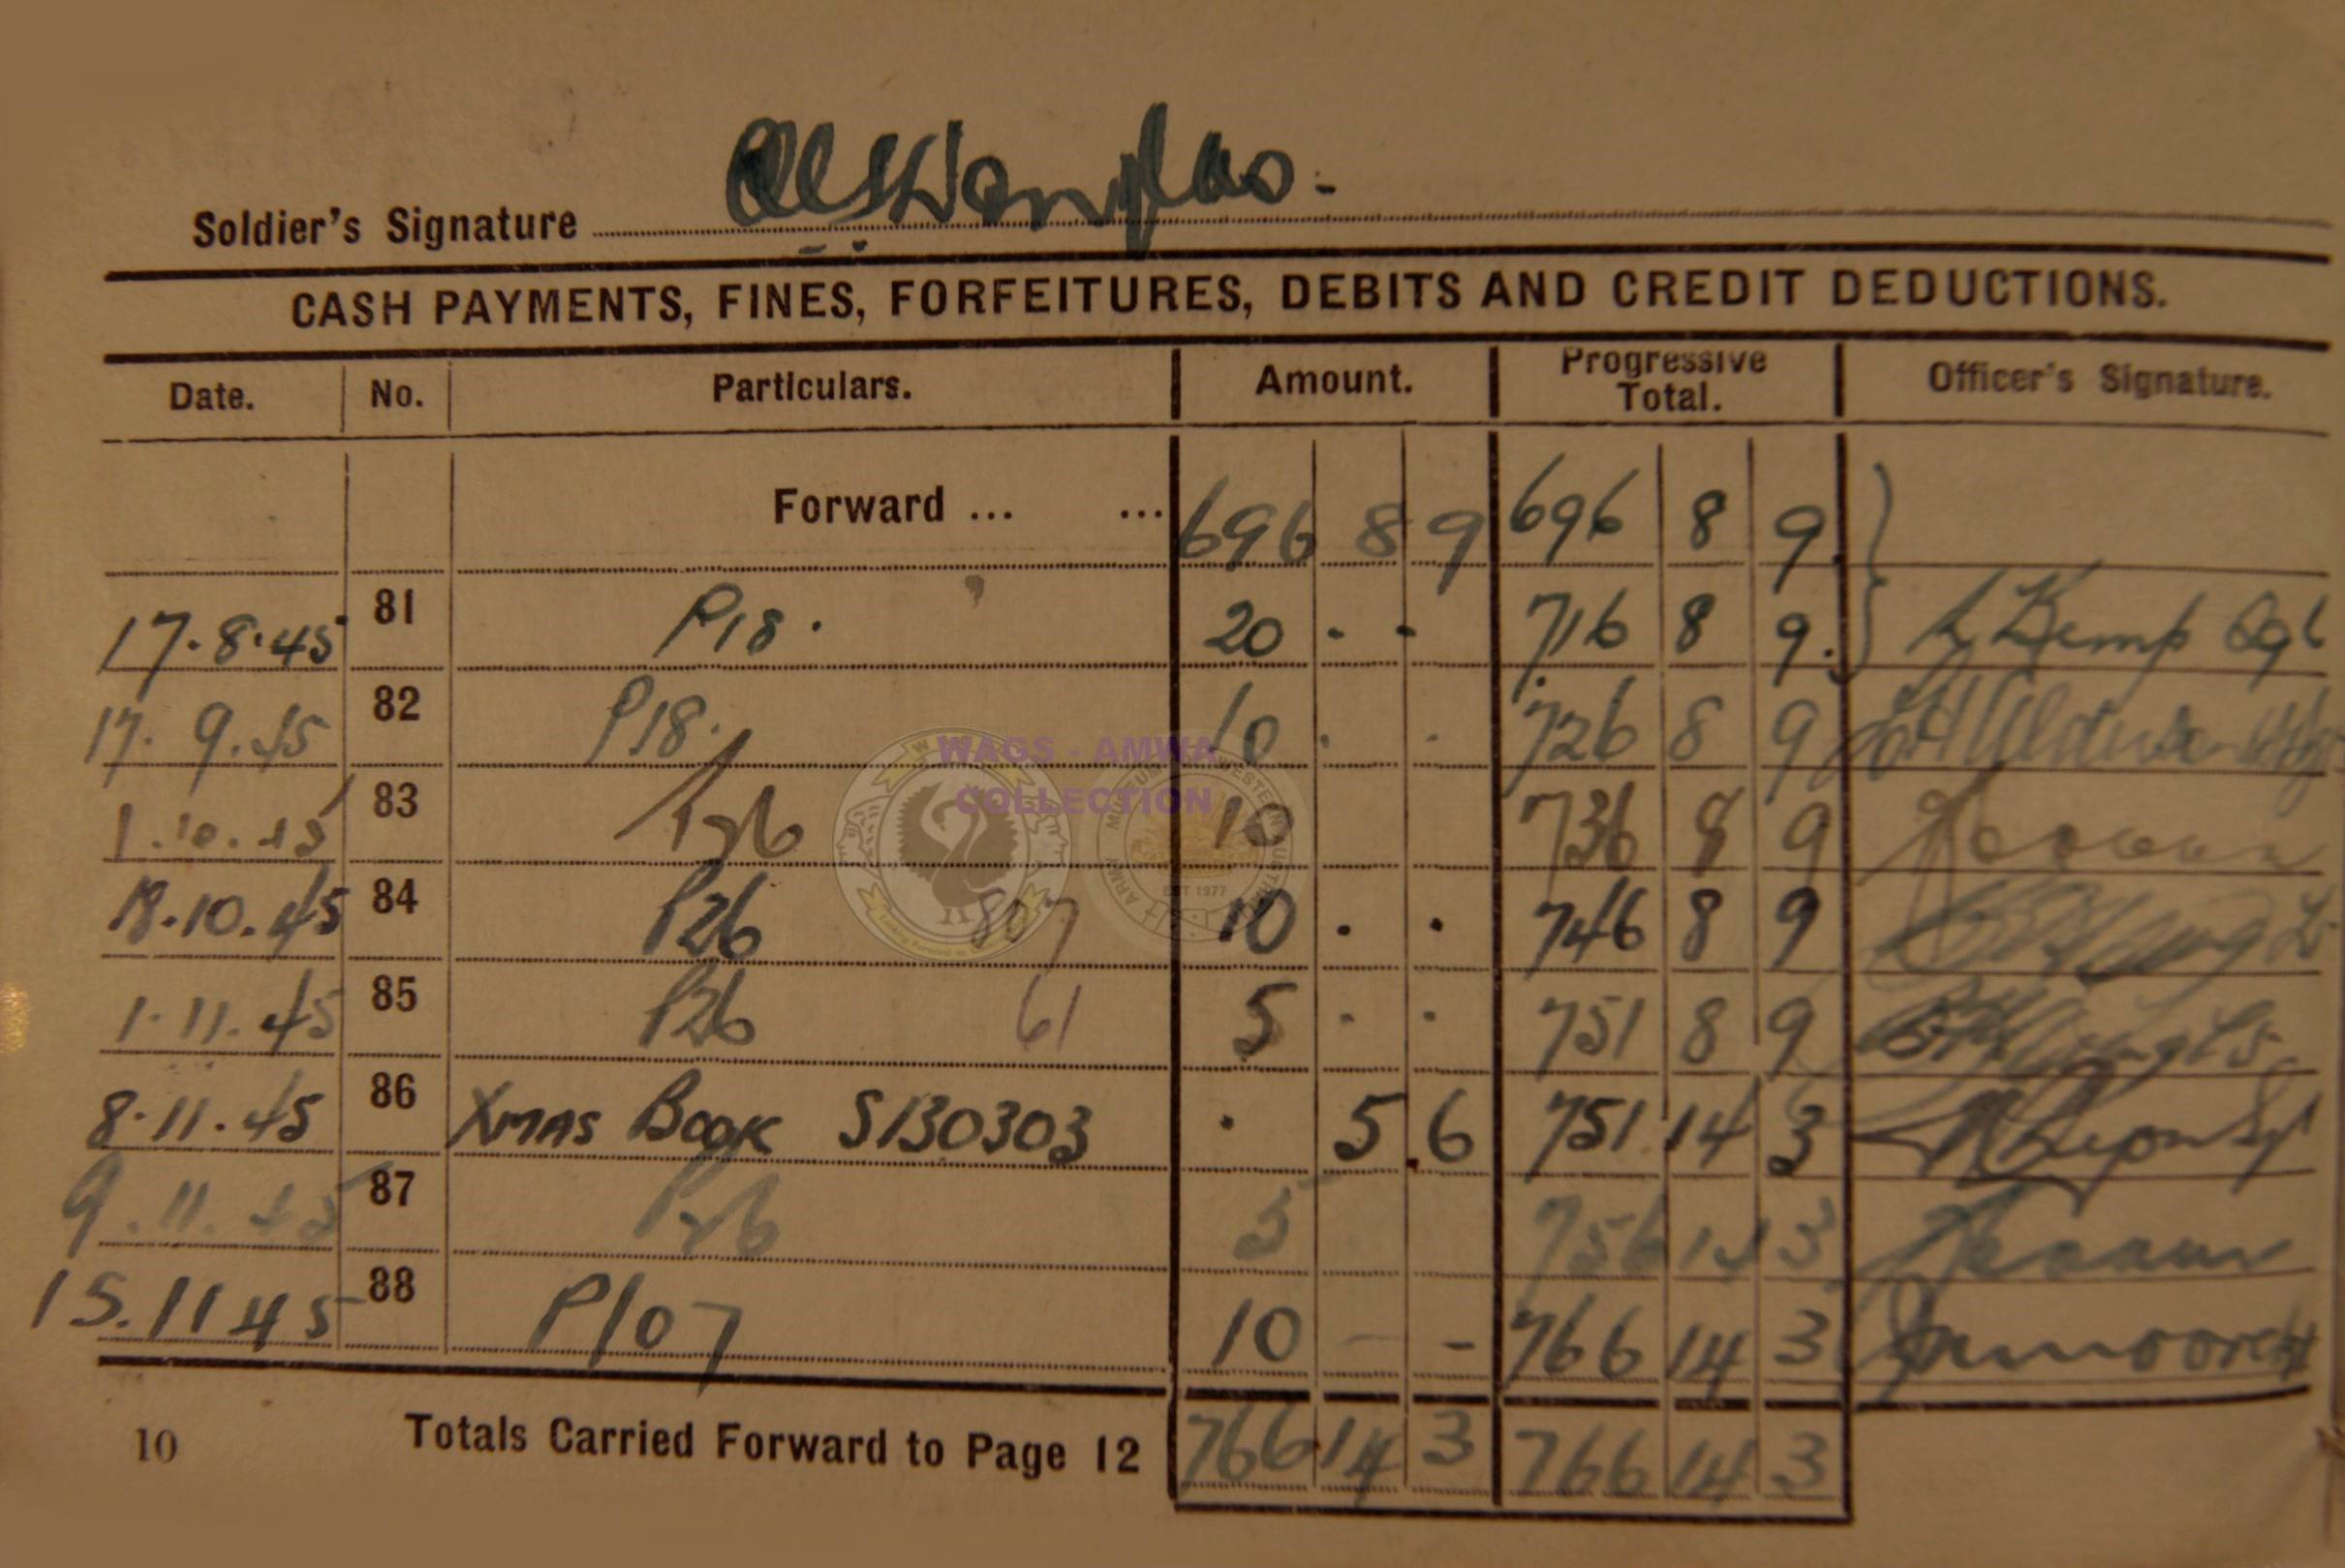 Soldier's Signature
CASH PAYMENTS, FINES, FORFEITURES, DEBITS AND CREDIT DEDUCTIONS.
Date. No. Particulars. Amount. Progressive Total. Officer's Signature.
Forward ... ... 696 8 9 696 8 9
17.8.45 81 P18. 20 . . 716 8 9. Kemp
17.9.45 82 P18. 10 . . 726 8 9
1.10.45 83 P26 10 736 8 9
18.10.45 84 P26 807 10 . . 746 8 9
1.11.45 85 P26 61 5 . . 751 8 9
8.11.45 86 XMAS BOOK S130303 . 5 6 751 14 3
9.11.45 87 P26 5 756 14 3
15.11 45 88 P107 10 – – 766 14 3
10 Totals Carried Forward to Page 12 766 14 3 766 14 3
WAGS - AMWA
COLLECTION
EST 1977